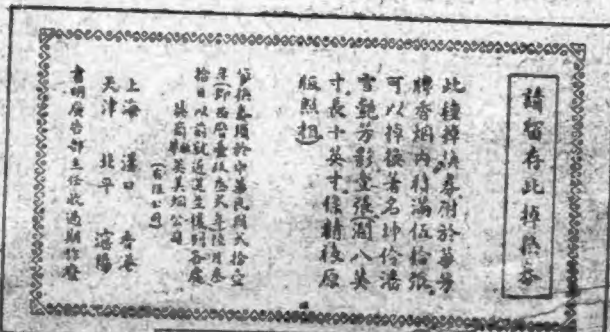 請留存此掉換券
此種掉換券附於華芳
牌香烟内積滿伍拾張
可以掉換著名坤伶潘
雪艷芳影壹張(濶八英
寸長十英寸係精 原
版照相)
換 須於中華民國弍拾壹
年(即西歷壹玖叁弍年陸月叁
拾日以前就近送至後列各處
英商 英美烟公司
(有限公司)
上海 漢口 香港
天津 北平 瀋陽
書明廣告部主任收過期作廢